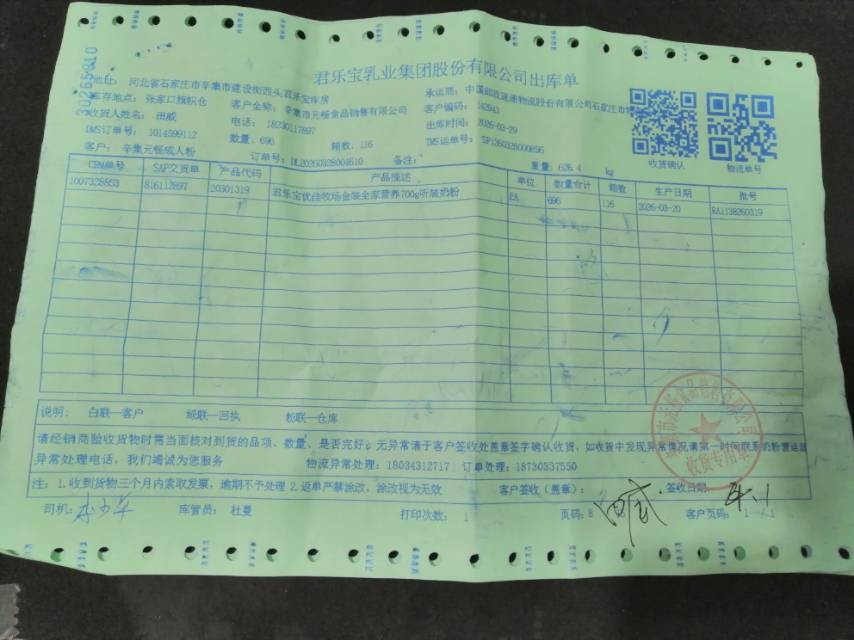 30265810
君乐宝乳业集团股份有限公司出库单
地址: 河北省石家庄市辛集市建设街西头君乐宝库房
承运商: 中国邮政速递物流股份有限公司石家庄市
库存地点: 张家口旗帜仓
客户全称: 辛集市元畅食品销售有限公司
客户编码: 142943
收货人姓名: 田威
电话: 18230117897
出库时间: 2026-03-29
IMS订单号: 1014599112
数量: 696
箱数: 116
TMS运单号: SP1260328000896
客户: 辛集元畅成人粉
订单号: DL20260328004610
备注:
重量: 626.4 kg
收货确认
物流单号
CRM单号 SAP交货单 产品代码 产品描述 单位 数量合计 箱数 生产日期 批号
1007328853 816112897 20301319 君乐宝优佳牧场金装全家营养700g听装奶粉 EA 696 116 2026-03-20 RA113B260319
说明: 白联—客户 绿联—回执 粉联—仓库
请经销商验收货物时需当面核对到货的品项、数量、是否完好。无异常请于客户签收处盖章签字确认收货，如收货中发现异常情况请第一时间联系奶粉营运部
异常处理电话，我们竭诚为您服务 物流异常处理: 18034312717, 订单处理: 18730337550
注: 1.收到货物三个月内索取发票，逾期不予处理 2.返单严禁涂改，涂改视为无效
客户签收（盖章）: 田威
签收日期:
收货专用章
司机:
库管员: 杜曼
打印次数: 1
页码: 8
客户页码: 1